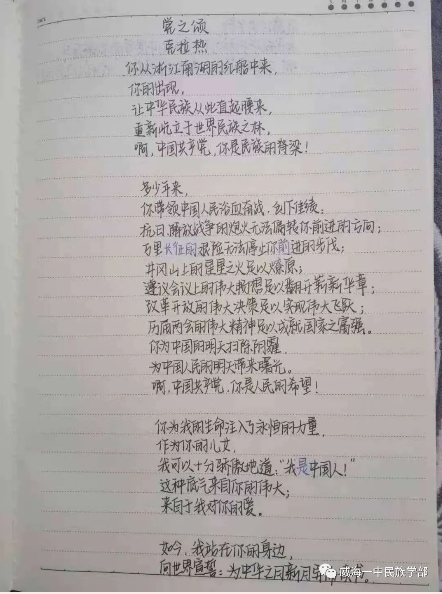 党之颂
克拉热
你从浙江南湖的红船中来,
你的出现,
让中华民族从此直起腰来,
重新屹立于世界民族之林。
啊,中国共产党,你是民族的脊梁!
多少年来,
你带领中国人民浴血奋战,创下佳绩:
抗日、解放战争的炮火无法扁转你前进的方向;
万里长征的艰险无法停止你前进的步伐;
井冈山上的星星之火足以燎原;
遵义会议上的伟大 足以翻开崭新华章;
改革开放的伟大决策足以实现伟大飞跃;
历届两会的伟大精神足以成就国家之富强。
你为中国的明天扫除阴霾,
为中国人民的明天带来曙光。
啊,中国共产党,你是人民的希望!
你为我的生命注入了永恒的力量,
作为你的儿女,
我可以十分骄傲地道:“我是中国人!”
这种底气来自你的伟大;
来自于我对你的爱。
如今,我站在你的身边,
向世界宣誓:为中华之日新月异而
威海一中民族学部